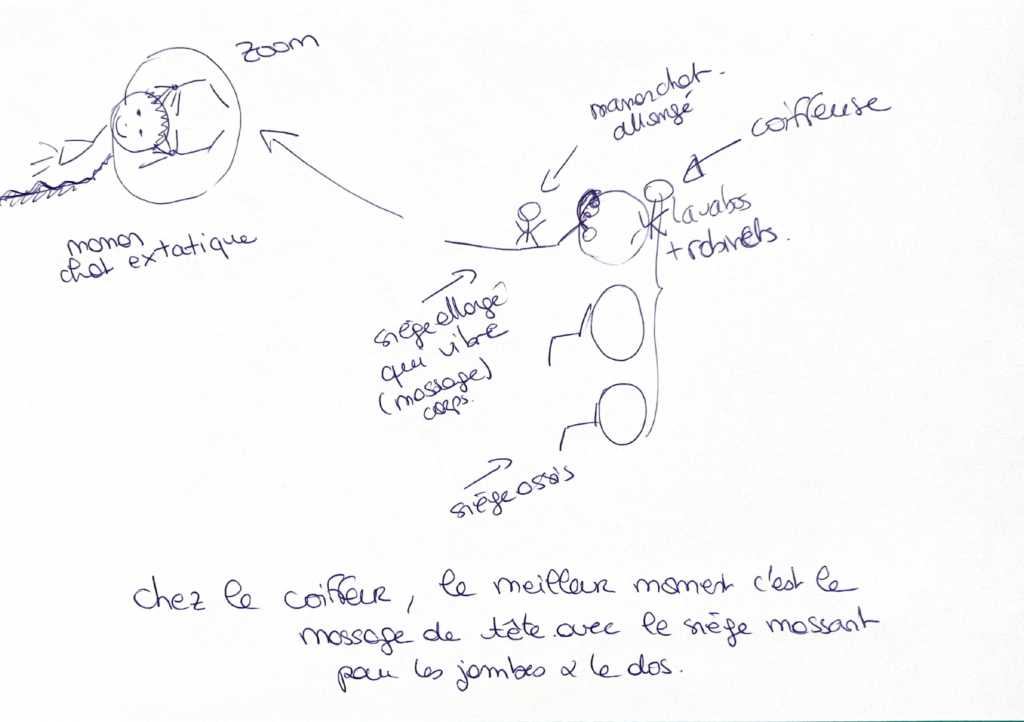 zoom
manonchat
allongé
coiffeuse
lavabos
+ robinets.
manon
chat extatique
siège allongé
qui vibre
(massage)
corps.
siège assis
chez le coiffeur, le meilleur moment c'est le
massage de tête avec le siège massant
pour les jambes & le dos.